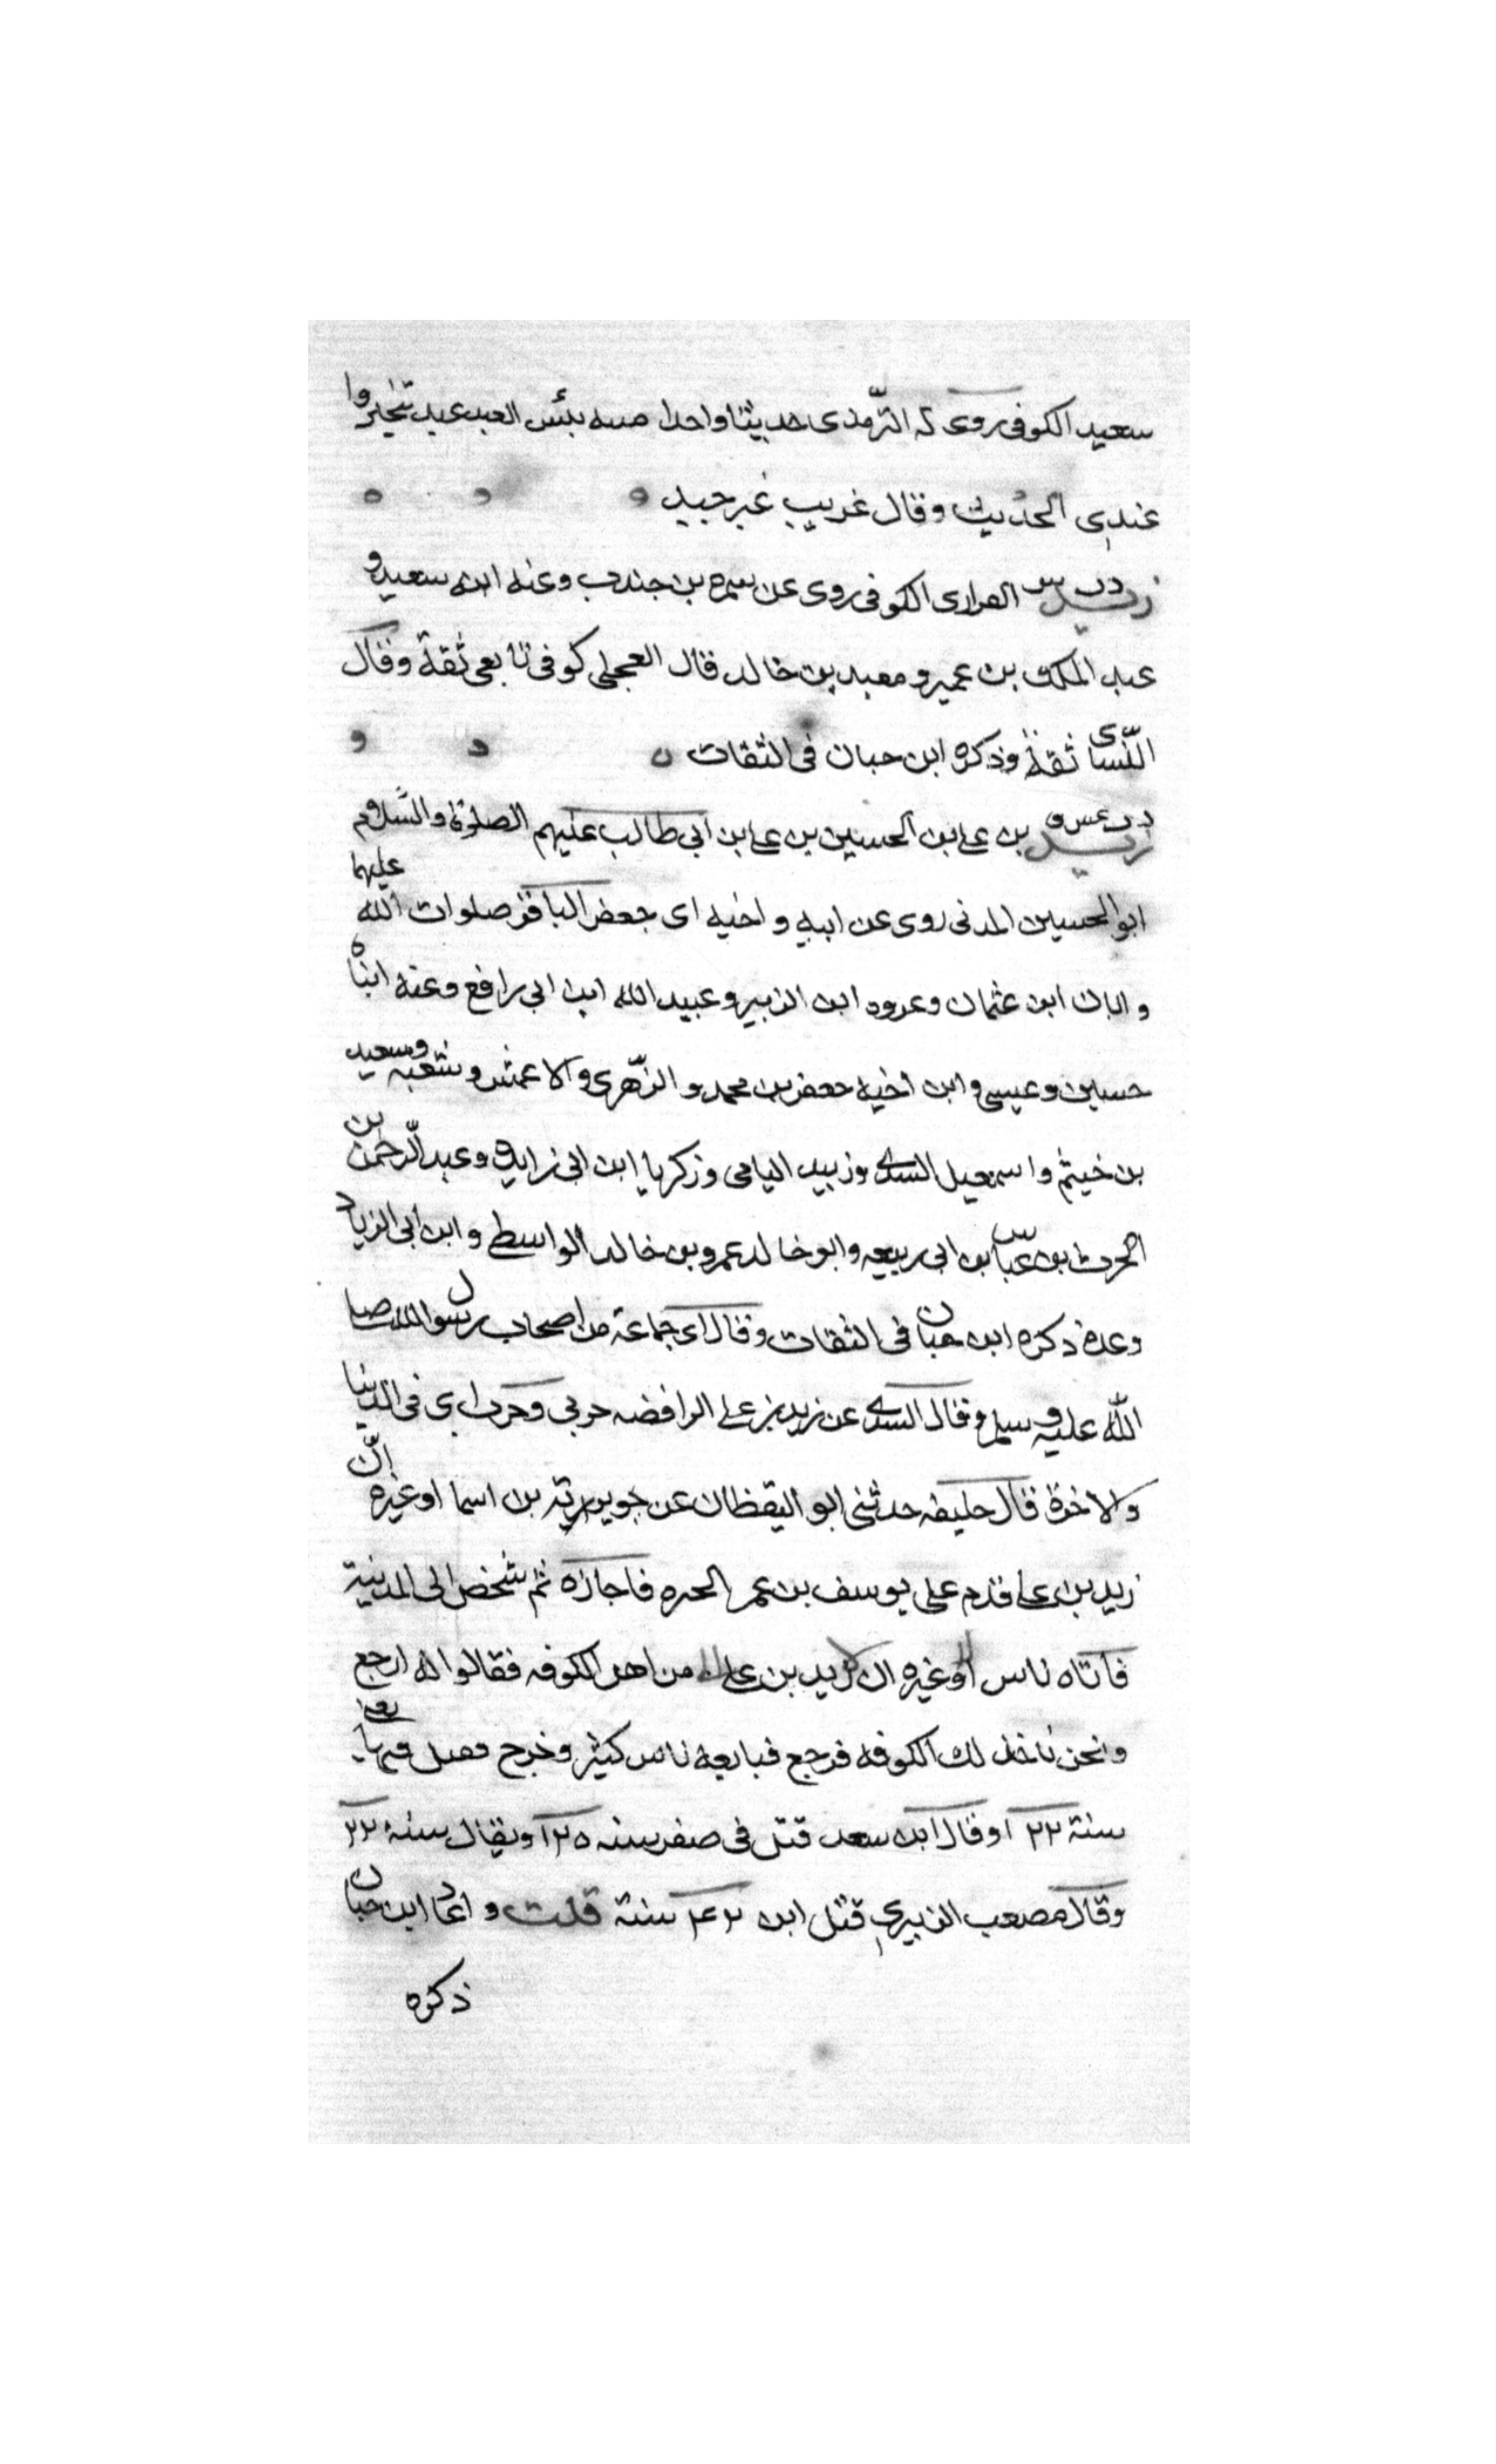 سعيد الكوفى روى له الترّمذى حديثا واحدا منه بئس العبد عبد تخيروا
عندى الحديث وقال غريب غير جيد
د ت س زيد الفرارى الكوفى روى عن سمرة بن جندب وعنه ابنه سعيد و
عبد الملك بن عمير و معبد بن خالد قال العجلى كوفى تابعى ثقة وقال
النّساى ثقة وذكره ابن حبان فى الثقات
د ت عس ق زيد بن على بن الحسين بن على بن ابى طالب عليهم الصلوة والسّلام
ابو الحسين المدنى روى عن ابيه و اخيه اى جعفر الباقر صلوات الله عليهما
و ابان ابن عثمان وعروه ابن الزبير وعبيد الله ابن ابى رافع وعنه ابناه
حسين وعيسى و ابن اخيه جعفر بن محمد و الزّهرى والاعمش و شعبه وسعيد
بن خيثم و اسمعيل السدى وزبيد اليامى وزكريا ابن ابى زايدة وعبد الرّحمن بن
الحرث بن عبّاس بن ابى ربيعه وابو خالد عمرو بن خالد الواسطى وابن ابى الزياد
وعدة ذكره ابن حبان فى الثقات وقال اى جماعة من اصحاب رسول الله صلى
الله عليه و سلم وقال السدى عن زيد بن على الرافضه حربى وحرب ابى فى الدنيا
والاخرة قال خليفه حدثنى ابو اليقظان عن جويريته بن اسما او غيره انّ
زيد بن على قدم على يوسف بن عمر الحيره فاجازه ثم شخص الى المدينة
فاتاه ناس او غيره ان زيد بن على من اهل الكوفه فقالوا له ارجع
و نحن ناخذ لك الكوفه فرجع فبايعه ناس كثير وخرج فقتل فيها يعنى
سنة ١٢٢ وقال ابن سعد قتل فى صفر سنه ١٢٥ ويقال سنة ٢٢
وقال مصعب الزبيرى قتل ابن ٤٢ سنة قلت و اعاد ابن حبان
ذكره